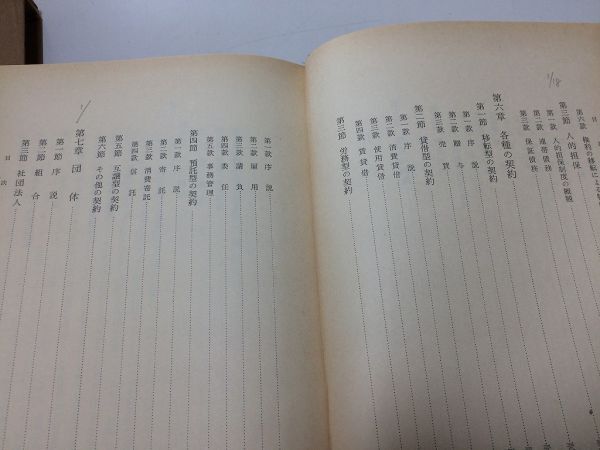 目
第六款 権利の移転による
第三節 人的担保
第一款 人的担保制度の種類
第二款 連帯債務
第三款 保証債務
第六章 各種の契約
第一節 移転型の契約
第一款 序説
第二款 贈与
第三款 売買
第二節 貸借型の契約
第一款 序説
第二款 消費貸借
第三款 使用貸借
第四款 賃貸借
第三節 労務型の契約
1/18
第一款 序説
第二款 雇用
第三款 請負
第四款 委任
第五款 事務管理
第四節 預託型の契約
第一款 序説
第二款 寄託
第三款 消費寄託
第四款 信託
第五節 互譲型の契約
第六節 その他の契約
第七章 団体
第一節 序説
第二節 組合
第三節 社団法人
目次